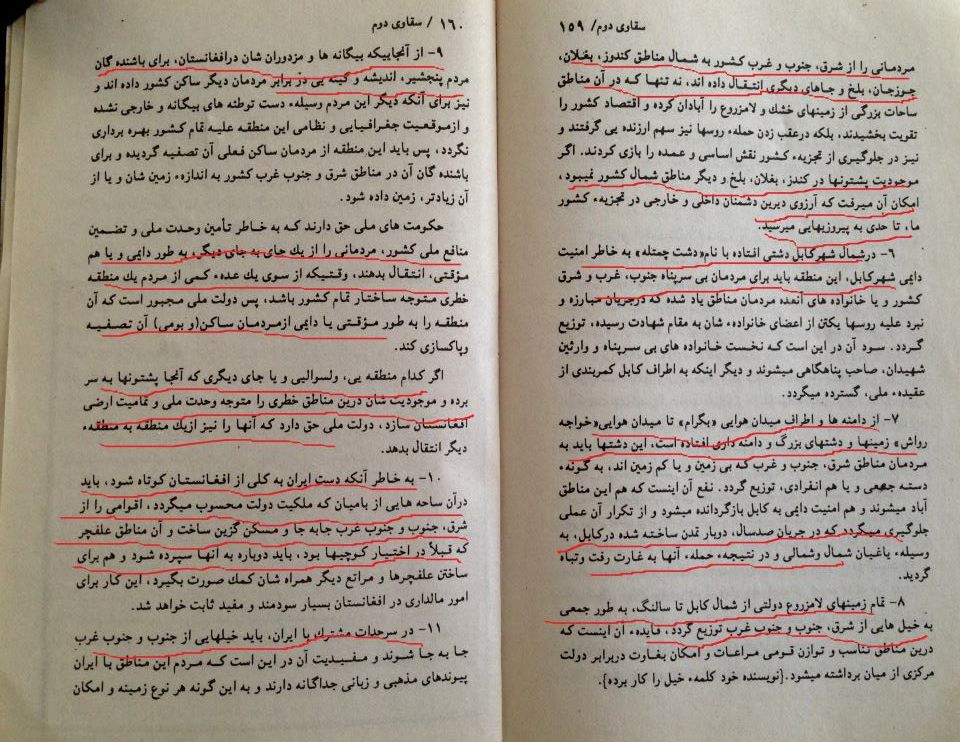 سقاوی دوم/ ۱۵۹
مردمانی را از شرق، جنوب و غرب کشور به شمال مناطق کندوز، بغلان،
جوزجان، بلخ و جاهای دیگری انتقال داده اند، نه تنها که در آن مناطق
ساحات بزرگی از زمینهای خشک و لامزروع را آبادان کرده و اقتصاد کشور را
تقویت بخشیدند، بلکه درعقب زدن حمله، روسها نیز سهم ارزنده یی گرفتند و
نیز در جلوگیری از تجزیه، کشور نقش اساسی و عمده را بازی کردند. اگر
موجودیت پشتونها در کندز، بغلان، بلخ و دیگر مناطق شمال کشور نمیبود،
امکان آن میرفت که آرزوی دیرین دشمنان داخلی و خارجی در تجزیه، کشور
ما، تا حدی به پیروزیهایی میرسید.
۶- درشمال شهرکابل دشتی افتاده با نام«دشت چمتله» به خاطر امنیت
دایمی شهرکابل، این منطقه باید برای مردمان بی سرپناه جنوب، غرب و شرق
کشور و یا خانواده های آنعده مردمان مناطق یاد شده که درجریان مبارزه و
نبرد علیه روسها یکتن از اعضای خانواده، شان به مقام شهادت رسیده، توزیع
گردد. سود آن در این است که نخست خانواده های بی سرپناه و وارثین
شهیدان، صاحب پناهگاهی میشوند و دیگر اینکه به اطراف کابل کمربندی از
عقیده، ملی، گسترده میگردد.
۷- از دامنه ها و اطراف میدان هوایی «بگرام» تا میدان هوایی«خواجه
رواش» زمینها و دشتهای بزرگ و دامنه داری افتاده است، این دشتها باید به
مردمان مناطق شرق، جنوب و غرب که بی زمین و یا کم زمین اند، به گونه،
دسته جمعی و یا هم انفرادی، توزیع گردد. نفع آن اینست که هم این مناطق
آباد میشوند و هم امنیت دایمی به کابل بازگردانده میشود و از تکرار آن عملی
جلوگیری میگردد که در جریان صدسال، دوبار تمدن ساخته شده درکابل، به
وسیله، باغیان شمال وشمالی و در نتیجه، حمله، آنها به غارت رفت وتباه
گردید.
۸- تمام زمینهای لامزروع دولتی از شمال کابل تا سالنگ، به طور جمعی
به خیل هایی از شرق، جنوب و جنوب غرب توزیع گردد، فایده، آن اینست که
درین مناطق تناسب و توازن قومی مراعات و امکان بغاوت دربرابر دولت
مرکزی از میان برداشته میشود.{نویسنده خود کلمه، خیل را کار برده}.
۱۶۰ / سقاوی دوم
۹- از آنجاییکه بیگانه ها و مزدوران شان درافغانستان، برای باشنده گان
مردم پنجشیر، اندیشه و کینه یی در برابر مردمان دیگر ساکن کشور داده اند و
نیز برای آنکه دیگر این مردم وسیله، دست توطئه های بیگانه و خارجی نشده
و ازموقعیت جغرافیایی و نظامی این منطقه علیه تمام کشور بهره برداری
نگردد، پس باید این منطقه از مردمان ساکن فعلی آن تصفیه گردیده و برای
باشنده گان آن در مناطق شرق و جنوب غرب کشور به اندازه، زمین شان و یا از
آن زیادتر، زمین داده شود.
حکومت های ملی حق دارند که به خاطر تأمین وحدت ملی و تضمین
منافع ملی کشور، مردمانی را از یك جای به جای دیگر، به طور دایمی و یا هم
مؤقتی، انتقال بدهند، وقتیکه از سوی یك عده، کمی از مردم یك منطقه
خطری متوجه ساختار تمام کشور باشد، پس دولت ملی مجبور است که آن
منطقه را به طور مؤقتی یا دایمی ازمردمان ساکن(و بومی) آن تصفیه
وپاکسازی کند.
اگر کدام منطقه یی، ولسوالیی و یا جای دیگری که آنجا پشتونها به سر
برده و موجودیت شان درین مناطق خطری را متوجه وحدت ملی و تمامیت ارضی
افغانستان سازد، دولت ملی حق دارد که آنها را نیز ازیك منطقه به منطقه،
دیگر انتقال بدهد.
۱۰- به خاطر آنکه دست ایران به کلی از افغانستان کوتاه شود، باید
درآن ساحه هایی از بامیان که ملکیت دولت محسوب میگردد، اقوامی را از
شرق، جنوب و جنوب غرب جابه جا و مسکن گزین ساخت و آن مناطق علفچر
که قبلاً در اختیار کوچیها بود، باید دوباره به آنها سپرده شود و هم برای
ساختن علفچرها و مراتع دیگر همراه شان کمك صورت بگیرد، این کار برای
امور مالداری در افغانستان بسیار سودمند و مفید ثابت خواهد شد.
۱۱- در سرحدات مشترك با ایران، باید خیلهایی از جنوب و جنوب غرب
جا به جا شوند و مفیدیت آن در این است که مردم این مناطق با ایران
پیوندهای مذهبی و زبانی جداگانه دارند و به این گونه هر نوع زمینه و امکان